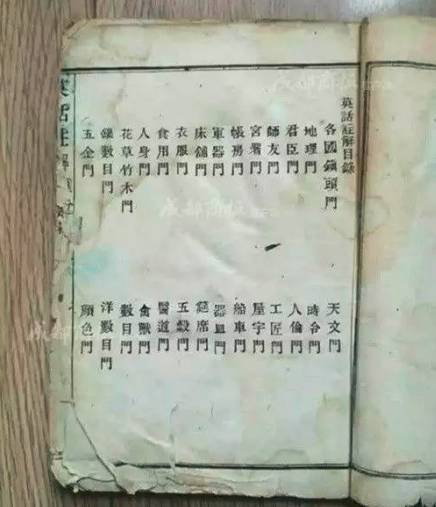 英話註解目錄
各國鎮頭門 天文門
地理門 時令門
君臣門 人倫門
師友門 工匠門
宮署門 屋宇門
帳房門 船車門
軍器門 器皿門
床舖門 筵席門
衣服門 五穀門
食用門 醫道門
人身門 禽獸門
花草竹木門 數目門
銀數目門 洋數目門
五金門 顏色門
話註解
成都商报